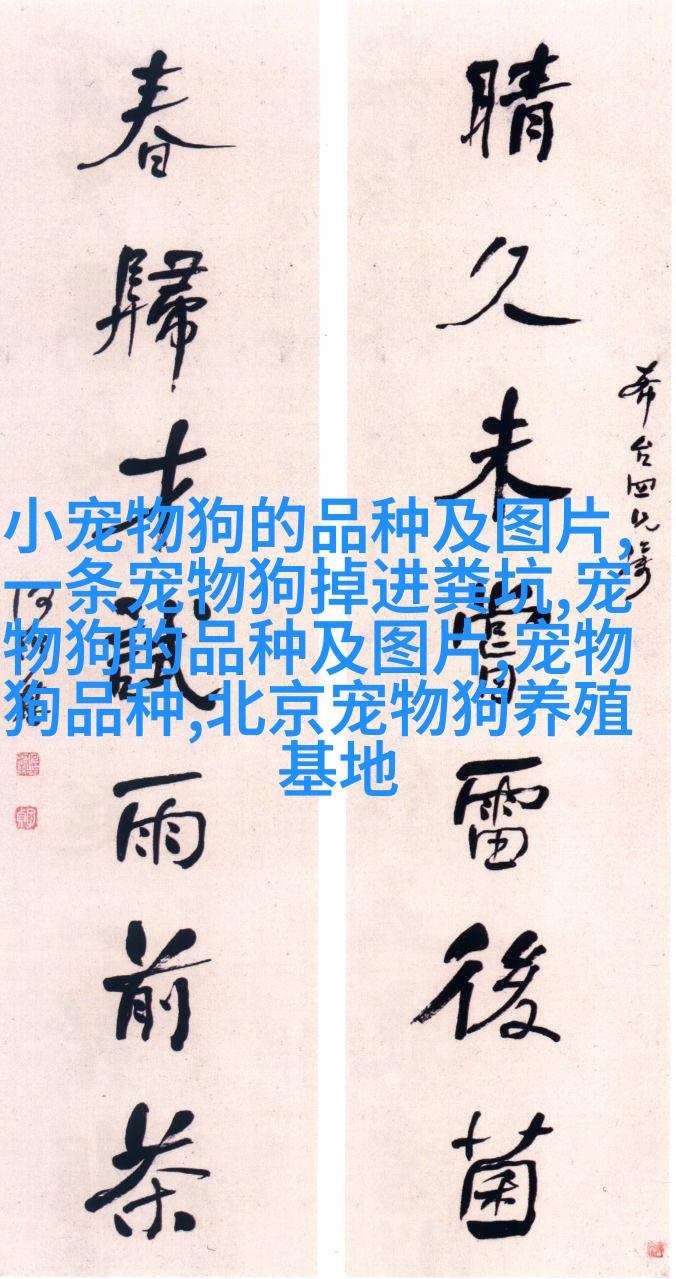 晴久未嘗雷後菌
春歸才識雨前茶
何紹基
小宠物狗的品种及图片,
一条宠物狗掉进粪坑,宠
物狗的品种及图片,宠物
狗品种,北京宠物狗养殖
基地